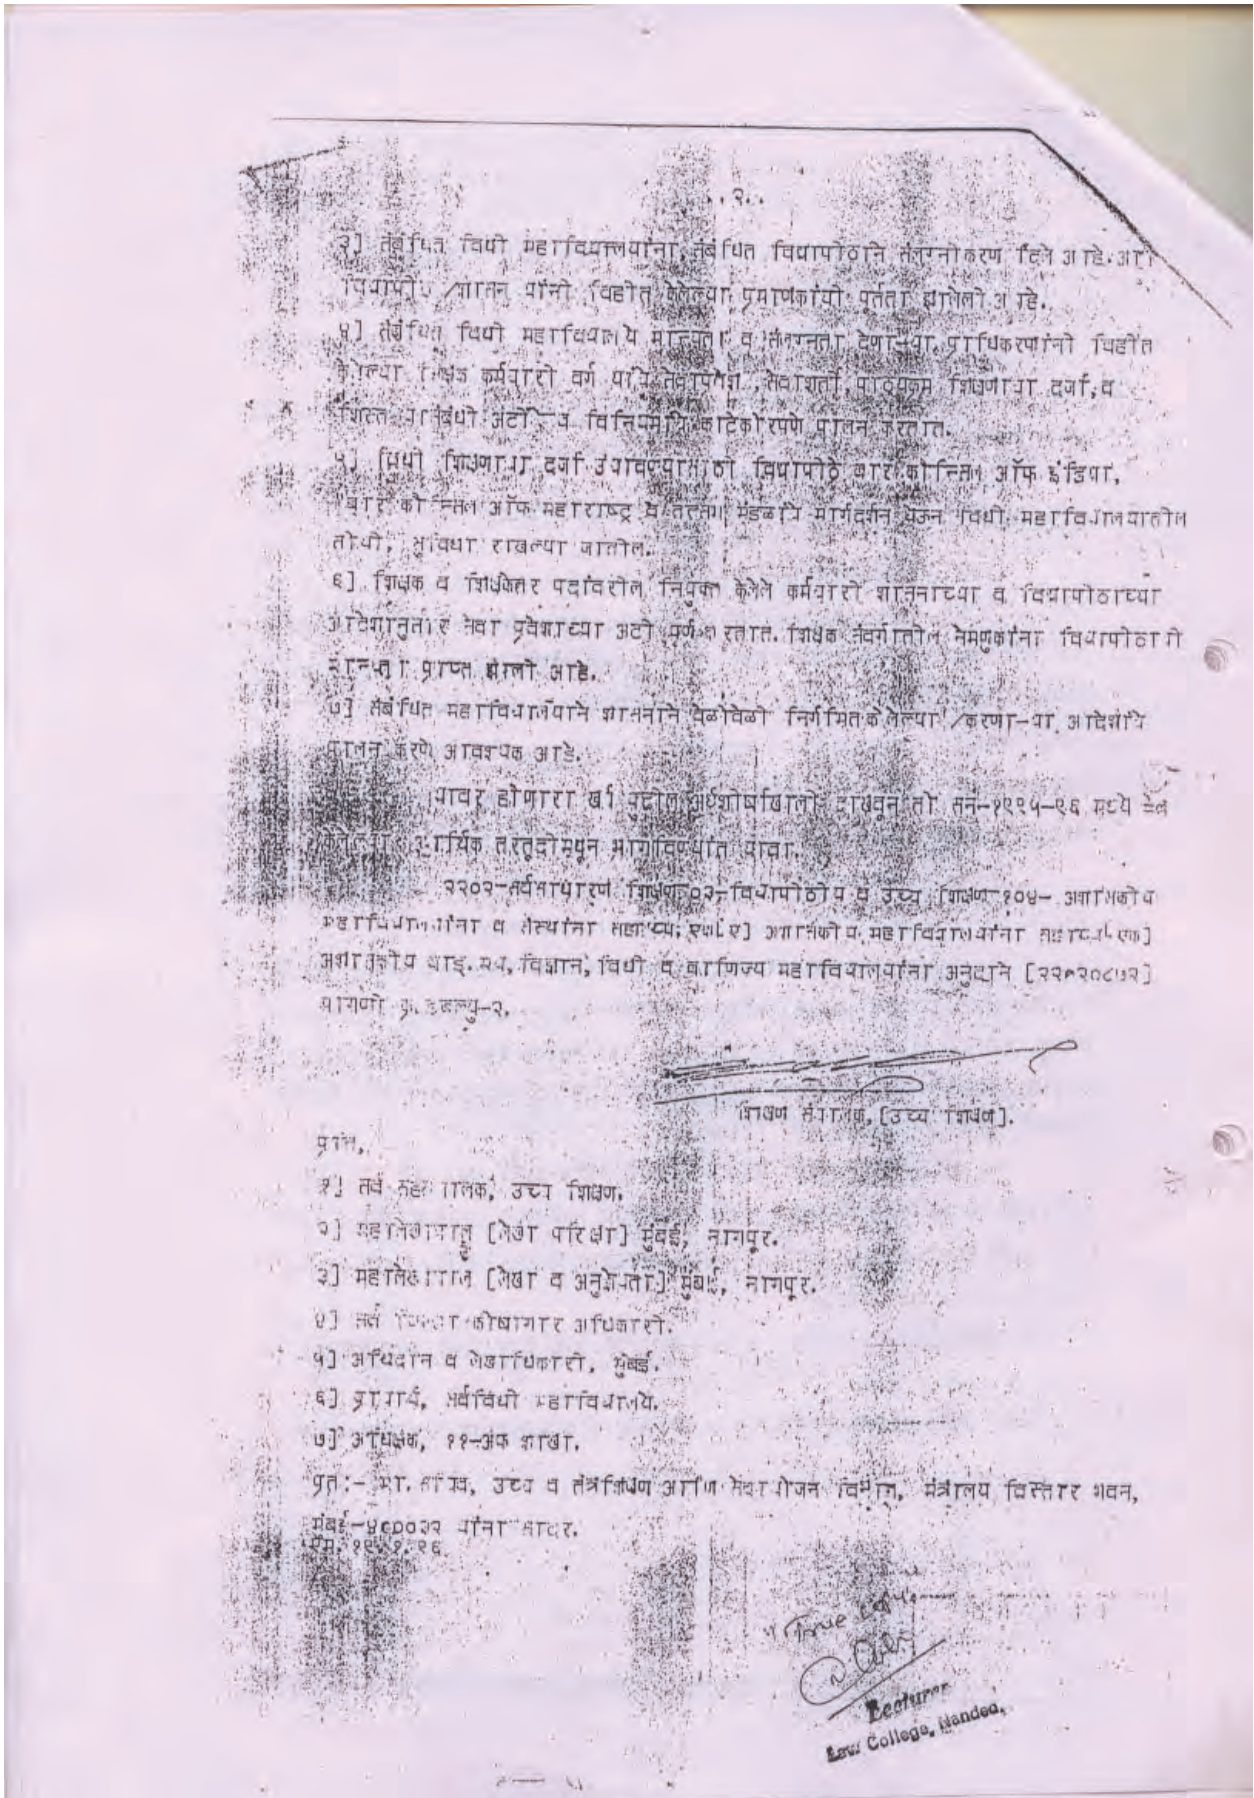 ..२..
३] संबंधित विधी महाविद्यालयांना, संबंधित विद्यापीठाने संलग्नीकरण दिले आहे.
विद्यापीठ /शासन यांनी विहीत केलेल्या प्रमाणकांची पूर्तता झालेली आहे.
४] संबंधित विधी महाविद्यालये मान्यता व संलग्नता देणा-या प्राधिकरणांनी विहीत
केलेल्या शिक्षक कर्मचारी वर्ग यांचे सेवाप्रवेश, सेवाशर्ती, पाठ्यक्रम शिक्षणाचा दर्जा, व
शिस्त यासंबंधी अटी व विनियमांचे काटेकोरपणे पालन करतात.
५] विधी शिक्षणाचा दर्जा उंचावण्यासाठी विद्यापीठे बार कौन्सिल ऑफ इंडिया,
बार कौन्सिल ऑफ महाराष्ट्र व तत्सम मंडळाचे मार्गदर्शन घेऊन विधी महाविद्यालयातील
सोयी, सुविधा राखल्या जातील.
६] शिक्षक व शिक्षकेतर पदांवरील नियुक्त केलेले कर्मचारी शासनाच्या व विद्यापीठाच्या
आदेशानुसार सेवा प्रवेशाच्या अटी पूर्ण करतात. शिक्षक संवर्गातील नेमणुकांना विद्यापीठाची
मान्यता प्राप्त झाली आहे.
७] संबंधित महाविद्यालयाने शासनाने वेळोवेळी निर्गमित केलेल्या /करणा-या आदेशांचे
पालन करणे आवश्यक आहे.
यावर होणारा खर्च पुढील अर्थशीर्षाखाली दाखवून तो सन-१९९५-९६ मध्ये
केलेल्या आर्थिक तरतूदीमधून भागविण्यात यावा.
२२०२-सर्वसाधारण शिक्षण ०३-विद्यापीठीय व उच्च शिक्षण १०४- अशासकीय
महाविद्यालयांना व संस्थांना सहाय्य, अशासकीय महाविद्यालयांना सहाय्य [एक]
अशासकीय वाङ्‌.मय, विज्ञान, विधी व वाणिज्य महाविद्यालयांना अनुदाने
मागणी क्र. डब्ल्यु-२.
शिक्षण संचालक, [उच्च शिक्षण].
प्रति,
१] सर्व सहसंचालक, उच्च शिक्षण.
२] महालेखापाल [लेखा परिक्षा] मुंबई, नागपूर.
३] महालेखापाल [लेखा व अनुज्ञेयता] मुंबई, नागपूर.
४] सर्व जिल्हा कोषागार अधिकारी.
५] अधिदान व लेखाधिकारी, मुंबई.
६] प्राचार्य, सर्व विधी महाविद्यालये.
७] अधिक्षक, ११-अंक शाखा.
प्रत:- मा. सचिव, उच्च व तंत्रशिक्षण आणि सेवायोजन विभाग, मंत्रालय विस्तार भवन,
मुंबई-४०००३२ यांना सादर.
True Copy
Lecturer
Law College, Nanded.